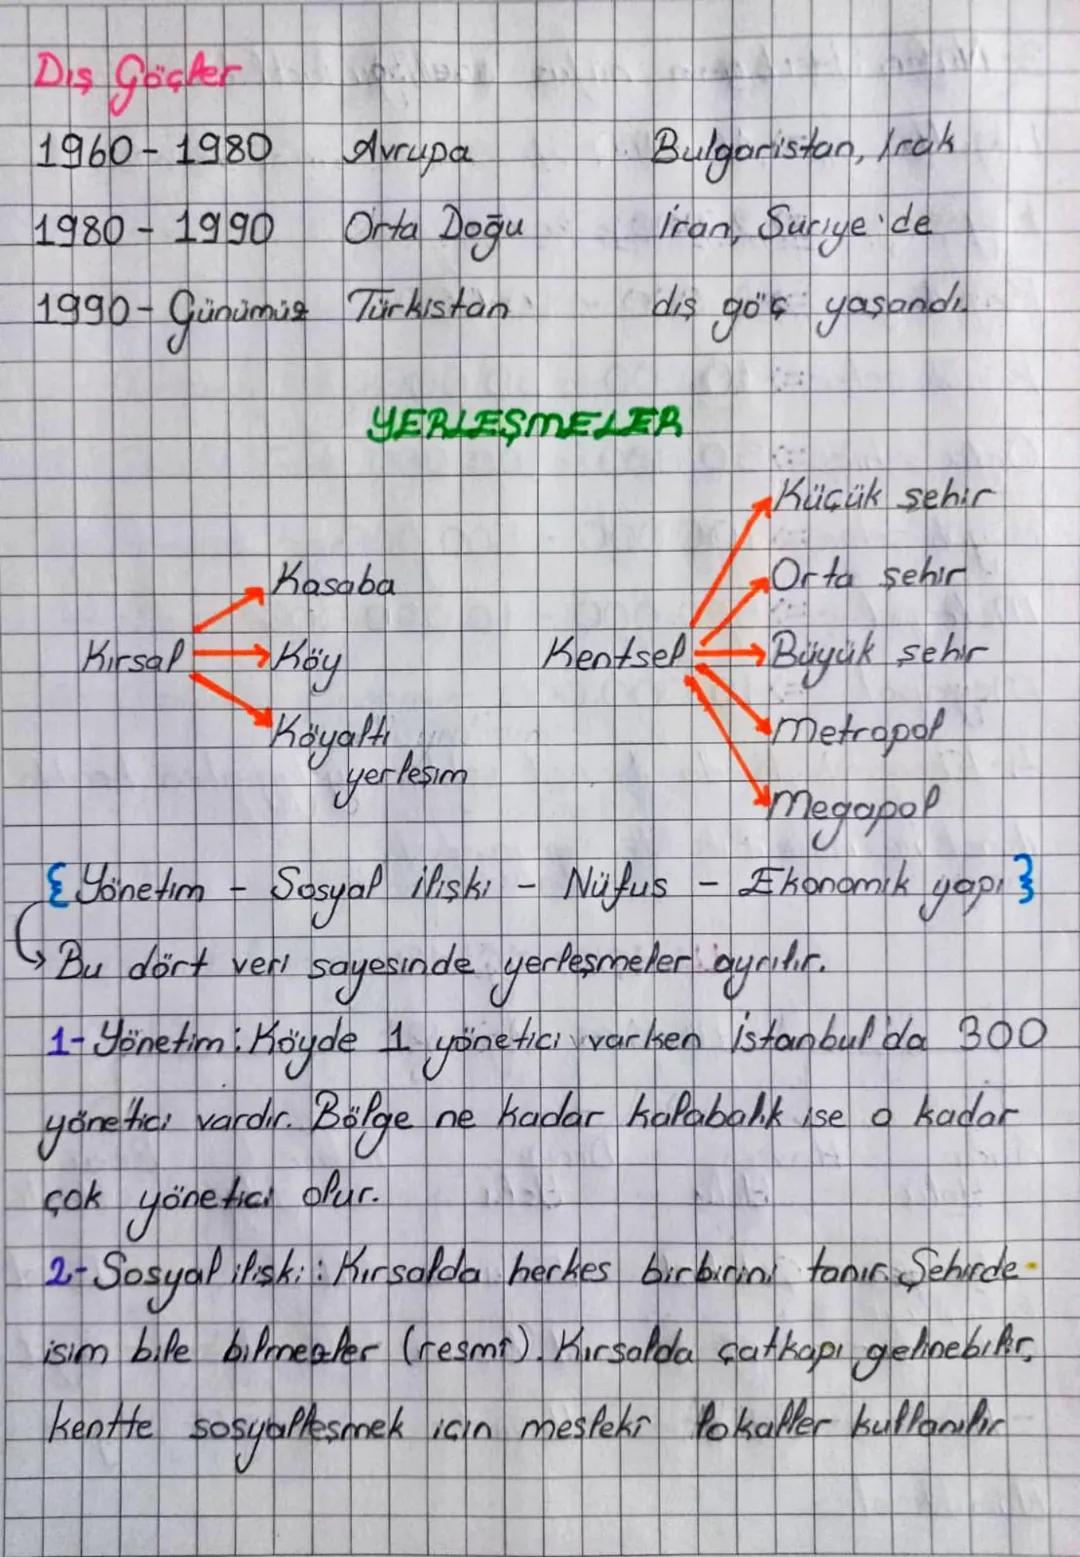 Dış Göçler
1960 - 1980 Avrupa Bulgaristan, Irak
1980 - 1990 Orta Doğu İran, Suriye'de
1990 - Günümüz Türkistan dış göç yaşandı.
YERLEŞMELER
Küçük şehir
Kasaba Orta şehir
Kırsal Köy Kentsel Büyük şehir
Köyaltı Metropol
yerleşim
Megapol
{ Yönetim - Sosyal ilişki - Nüfus - Ekonomik yapı }
Bu dört veri sayesinde yerleşmeler ayrılır.
1- Yönetim: Köyde 1 yönetici varken İstanbul'da 300
yönetici vardır. Bölge ne kadar kalabalık ise o kadar
çok yönetici olur.
2- Sosyal ilişki: Kırsalda herkes birbirini tanır. Şehirde
isim bile bilmezler (resmî). Kırsalda çatkapı gelinebilir,
kentte sosyalleşmek için mesleki lokaller kullanılır